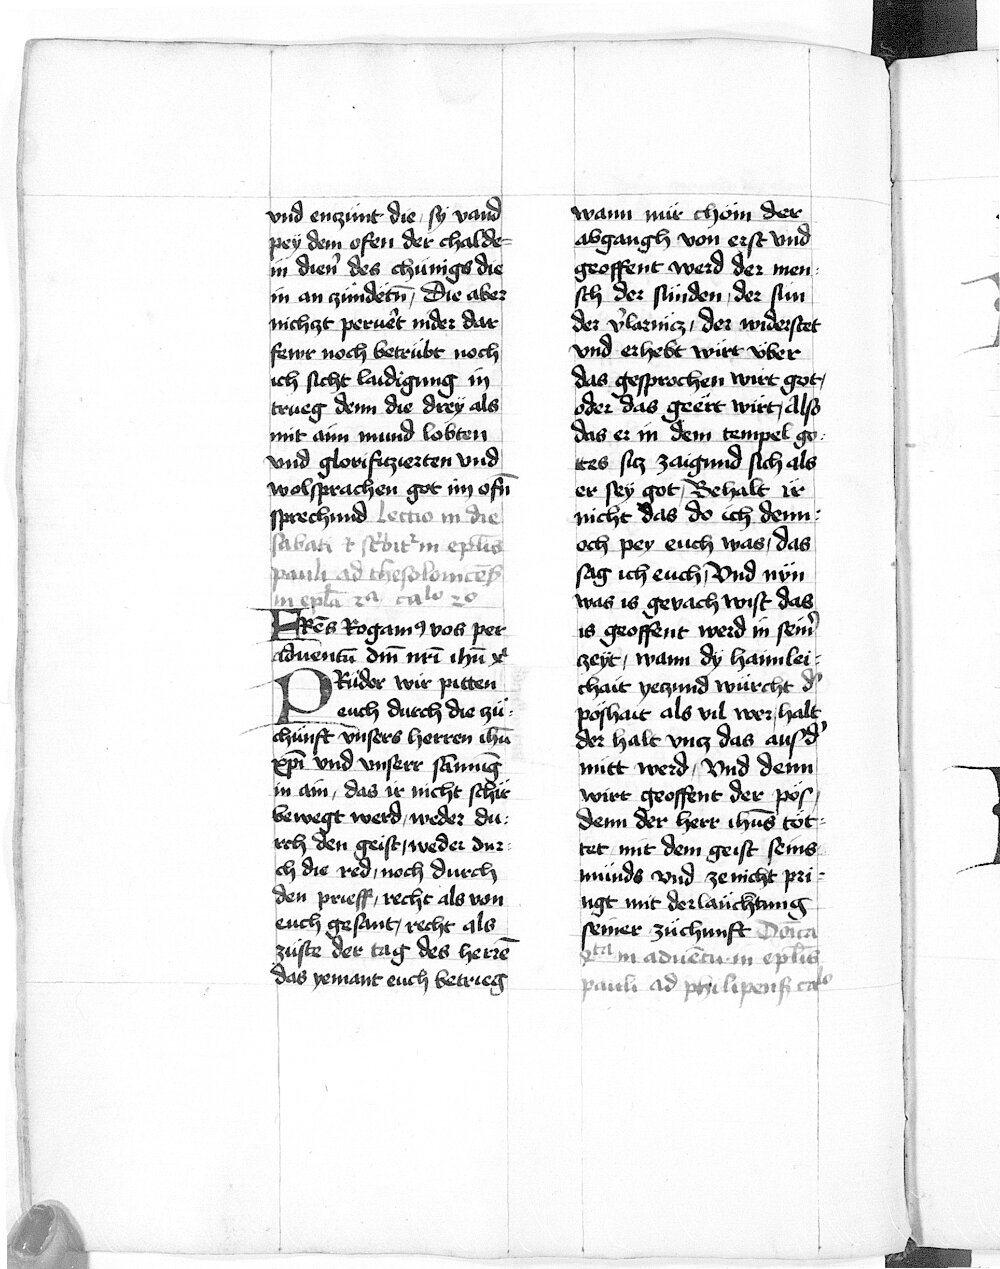 vnd enzünt die / sÿ vand
peÿ dem ofen der chalde-
in dien̉ des chünigs die
in an zündetn̄ / Die aber
nichzt peruẽrt inder dar
fewr noch betrübt noch
ich sicht laidigung in
trueg denn die dreÿ als
mit aim mund lobten
vnd glorifitzierten vnd
wolsprachen got im ofn̄
sprechund Lectio in die
sabati
pauli ad thesolonicēs̄
in epl̄a 2a ca^lo 2o
FRēs Rogamꝰ vos per
aduentū dm̄ nr̄i ihū x^i
PRüder wir pitten
euch durch die zü-
chunft vnsers herren ihū
xp̄i vnd vnserr samnūg
in ain / das ir nicht schir
bewegt werd / weder du-
rch den geist / weder dur-
ch die red / noch durch
den prieff / recht als von
euch gesant / recht als
zuste der tag des herrē
das yemant euch betrieg
wann nür chöm der
abgangh von erst vnd
geoffent werd der men-
sch der sünden / der sun
der v̉larnicz / der widerstet
vnd erhebt wirt vber
das gesprochen wirt got /
oder das geert wirt / Also
das er in dem tempel go-
tes sicz zaigund sich als
er seÿ got / Behalt ir
nicht das do ich denn-
och peÿ euch was / das
sag ich euch / Vnd nÿn
was is gevach wist das
is geoffent werd in sein̉
zeÿt / wann dÿ haimlei-
chait yeczund würcht d̉
poshait als vil wer halt
der halt vncz das aus d̉
mitt werd / Vnd denn
wirt geoffent der pös /
denn der herr ihūs töt-
tet mit dem geist seins
münds vnd ze nicht pri-
ngt mit der laüchtung
seiner züchunft Dōica
in aduētu in epl̄is
pauli ad philipens̄ ca^lo